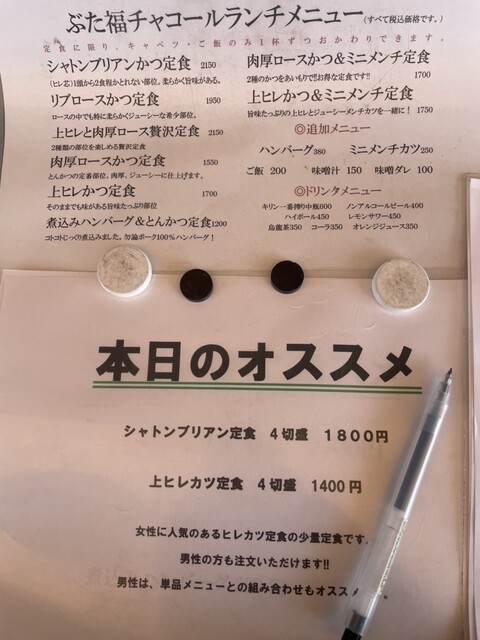 ぶた福チャコールランチメニュー(すべて税込価格です。)
定食に限り、キャベツ・ご飯のみ1杯ずつおかわりできます。
シャトンブリアンかつ定食 2150
(ヒレ芯)1頭から2食程かとれない部位。柔らかく旨味がある。
リブロースかつ定食 1950
ロースの中でも特に柔らかくジューシーな希少部位。
上ヒレと肉厚ロース贅沢定食 2150
2種類の部位を楽しめる贅沢定食
肉厚ロースかつ定食 1550
とんかつの定番部位。肉厚、ジューシーに仕上げます。
上ヒレかつ定食 1700
そのままでも味がある旨味たっぷり部位
煮込みハンバーグ&とんかつ定食1200
コトコトじっくり煮込みました。勿論ポーク100%ハンバーグ!
肉厚ロースかつ&ミニメンチ定食
2種のかつをあいもりで!!お得な定食です!! 1700
上ヒレかつ&ミニメンチ定食
旨味たっぷりの上ヒレとジューシーメンチカツを一緒に! 1750
◎追加メニュー
ハンバーグ380 ミニメンチカツ250
ご飯 200 味噌汁 150 味噌ダレ 100
◎ドリンクメニュー
キリン一番搾り中瓶600 ノンアルコールビール400
ハイボール450 レモンサワー450
烏龍茶350 コーラ350 オレンジジュース350
本日のオススメ
シャトンブリアン定食 4切盛 1800円
上ヒレカツ定食 4切盛 1400円
女性に人気のあるヒレカツ定食の少量定食です。
男性の方も注文いただけます!!
男性は、単品メニューとの組み合わせもオススメ